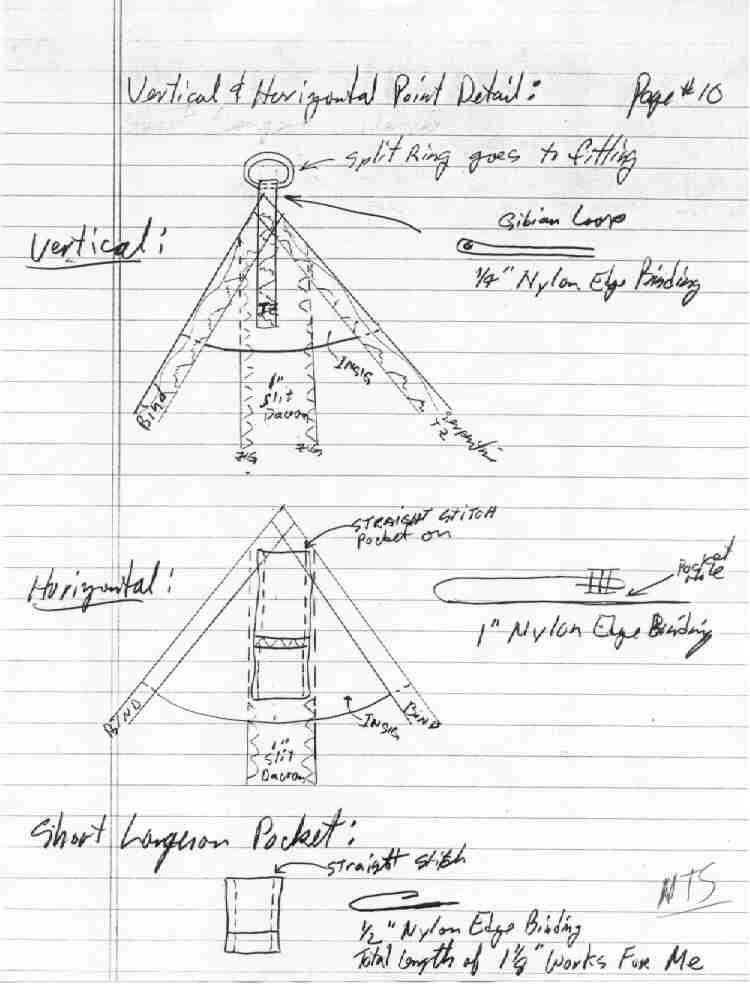 Vertical & Horizontal Point Detail: Page #10
Split Ring goes to fitting
Vertical:
Gibian Loop
1/4" Nylon Edge Binding
TZ
Insig
Bind
1"
Slit
Dacron
Serpentine
TZ
ZIG ZIG
STRAIGHT STITCH
Pocket on
Horizontal:
Pocket
Hole
1" Nylon Edge Binding
BIND BIND
INSIG
1"
Slit
Dacron
Short Longeron Pocket:
Straight Stitch
1/2" Nylon Edge Binding
Total Length of 1 1/8" Works For Me
NTS